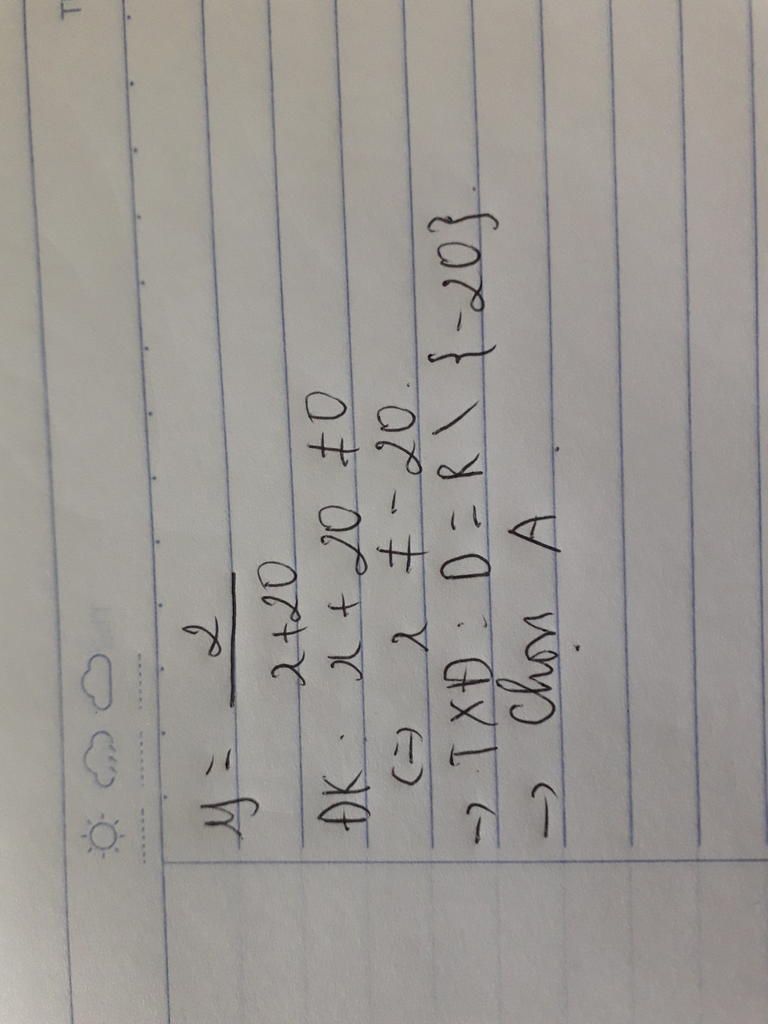 y = 2
x+20
ĐK: x + 20 ≠ 0
(=) x ≠ -20.
→ TXĐ: D = R \ {-20}.
→ Chọn A